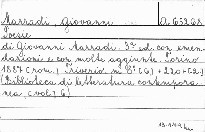 Marradi, Giovanni A 65268
Poesie
di Giovanni Marradi. 3ª ed. con emen-
dazioni e con molte aggiunte. Torino
1887 (Roux, m. 8° (6) + 220 + (2).
(Biblioteca di letteratura contempora
nea, (vol.) 6)